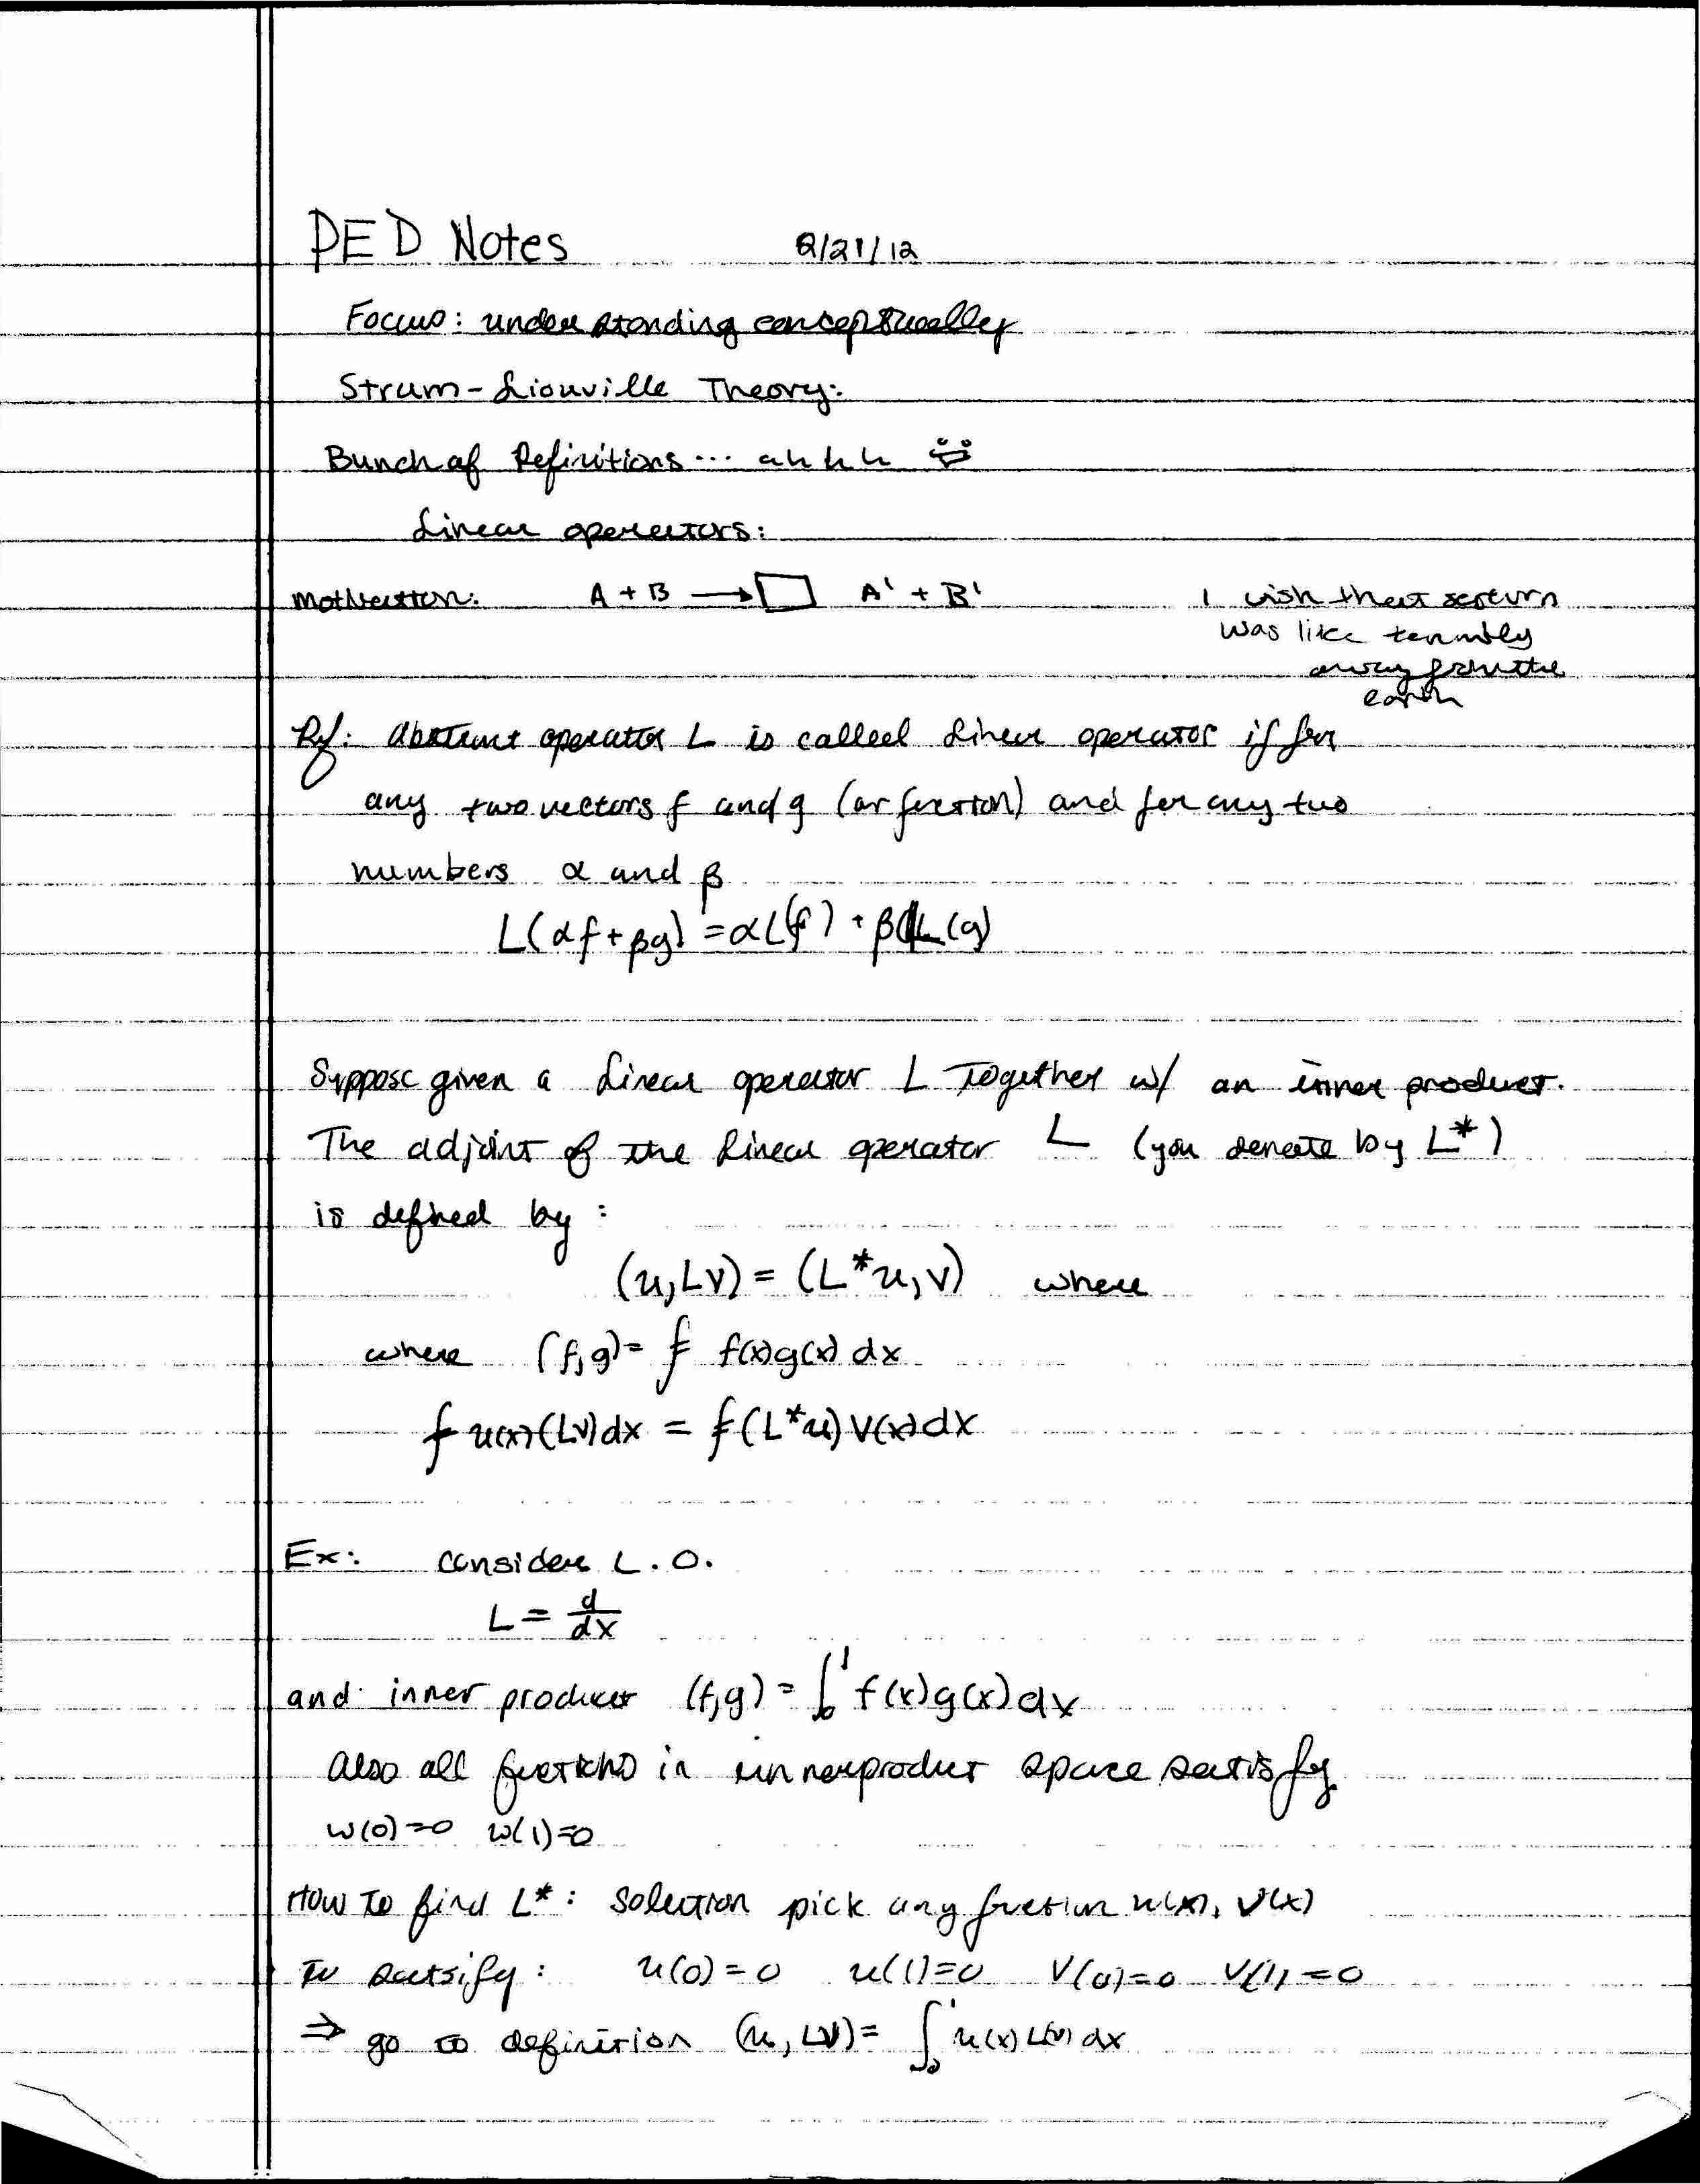 PED Notes 2/21/12
Focus: understanding conceptually
Strum-Liouville Theory:
Bunch of Definitions... ahhh
Linear operators:
motivation: A + B → □ A' + B'
I wish that saturn
was like ten miles
away from the
earth
Df: Abstract operator L is called linear operator if for
any two vectors f and g (or function) and for any two
numbers α and β
L(αf+βg) = αL(f) + βL(g)
Suppose given a linear operator L Together w/ an inner product.
The adjoint of the linear operator L (you denote by L*)
is defined by:
(u,Lv) = (L*u,v) where
where (f,g) = ∫ f(x)g(x) dx
∫ u(x)(Lv)dx = ∫(L*u)v(x)dx
Ex: consider L.O.
L = d/dx
and inner product (f,g) = ∫₀¹ f(x)g(x)dx
also all functions in innerproduct space satisfy
w(0)=0 w(1)=0
How To find L*: Solution pick any function u(x), v(x)
To satsify: u(0)=0 u(1)=0 v(0)=0 v(1)=0
⇒ go to definition (u,Lv) = ∫₀¹ u(x) L(v) dx